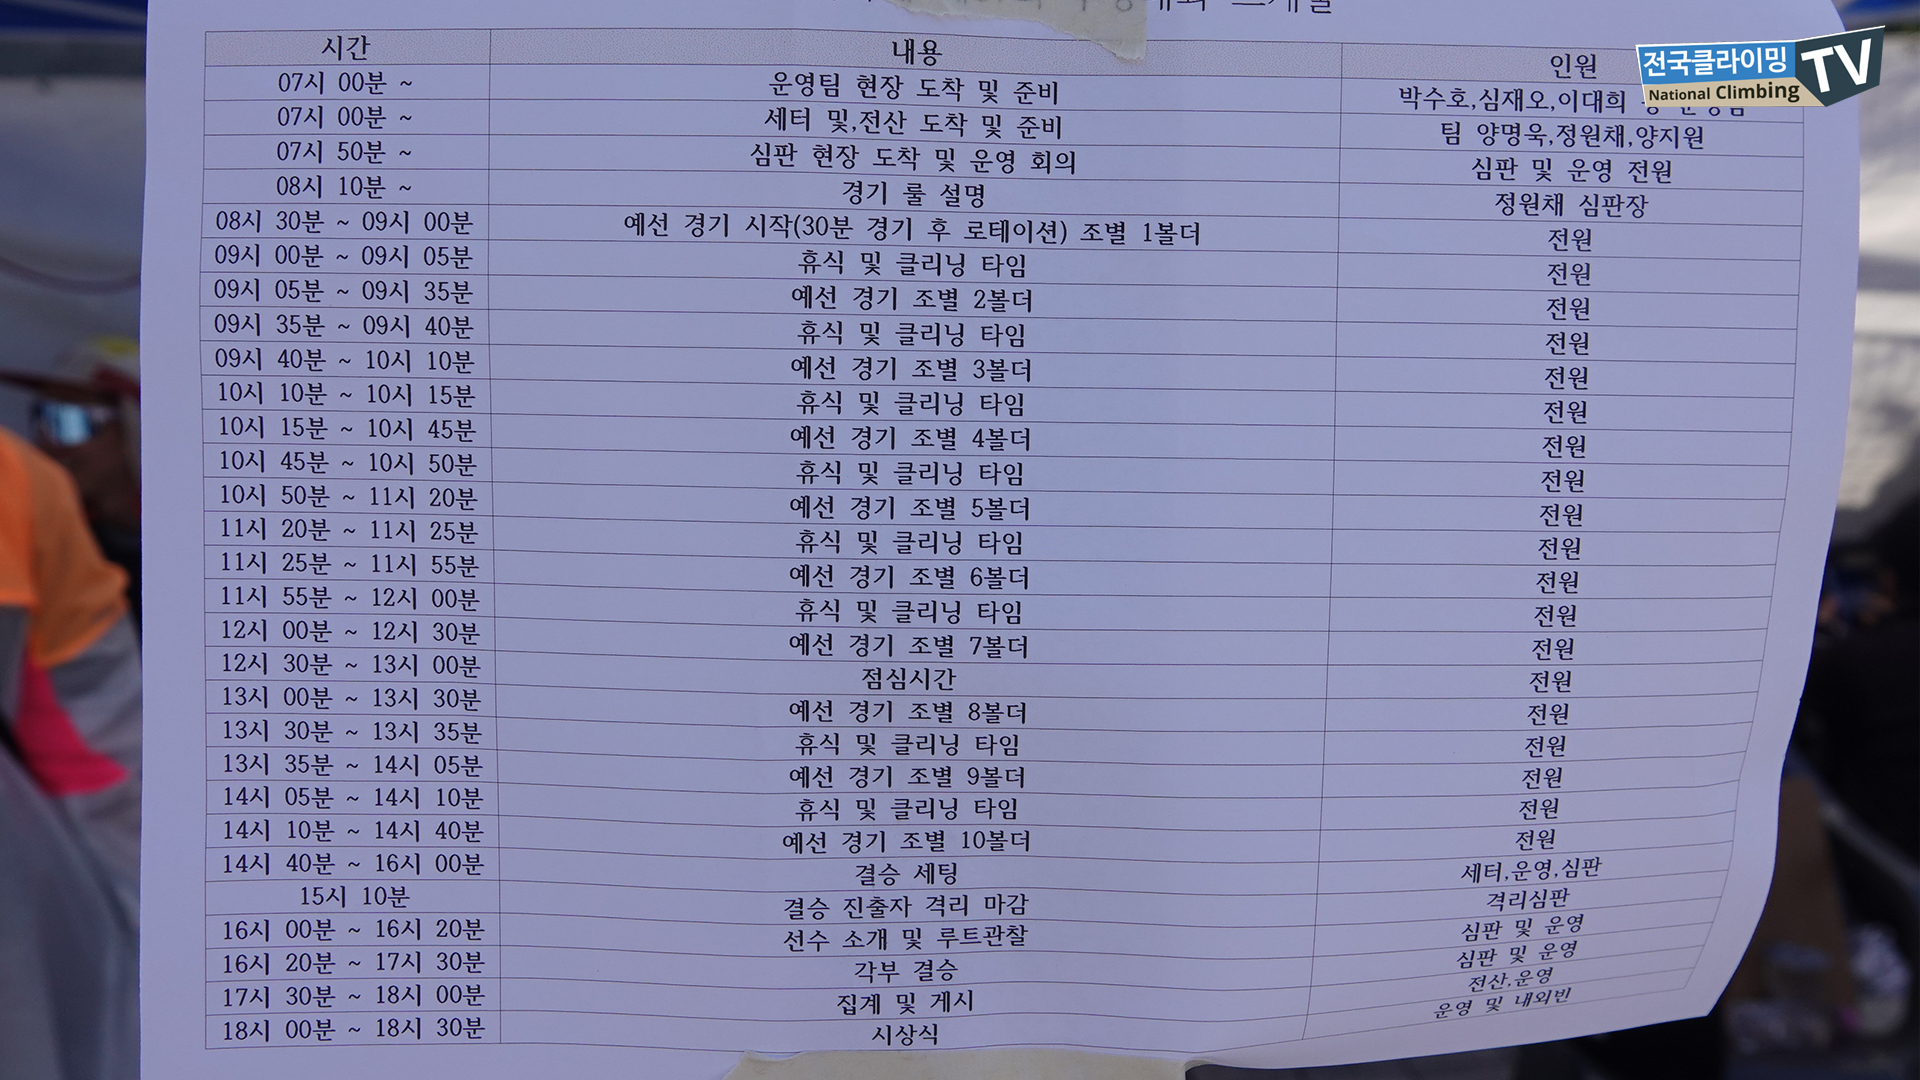 시간 내용 인원
07시 00분 ~ 운영팀 현장 도착 및 준비 박수호,심재오,이대희
07시 00분 ~ 세터 및,전산 도착 및 준비 팀 양명욱,정원채,양지원
07시 50분 ~ 심판 현장 도착 및 운영 회의 심판 및 운영 전원
08시 10분 ~ 경기 룰 설명 정원채 심판장
08시 30분 ~ 09시 00분 예선 경기 시작(30분 경기 후 로테이션) 조별 1볼더 전원
09시 00분 ~ 09시 05분 휴식 및 클리닝 타임 전원
09시 05분 ~ 09시 35분 예선 경기 조별 2볼더 전원
09시 35분 ~ 09시 40분 휴식 및 클리닝 타임 전원
09시 40분 ~ 10시 10분 예선 경기 조별 3볼더 전원
10시 10분 ~ 10시 15분 휴식 및 클리닝 타임 전원
10시 15분 ~ 10시 45분 예선 경기 조별 4볼더 전원
10시 45분 ~ 10시 50분 휴식 및 클리닝 타임 전원
10시 50분 ~ 11시 20분 예선 경기 조별 5볼더 전원
11시 20분 ~ 11시 25분 휴식 및 클리닝 타임 전원
11시 25분 ~ 11시 55분 예선 경기 조별 6볼더 전원
11시 55분 ~ 12시 00분 휴식 및 클리닝 타임 전원
12시 00분 ~ 12시 30분 예선 경기 조별 7볼더 전원
12시 30분 ~ 13시 00분 점심시간 전원
13시 00분 ~ 13시 30분 예선 경기 조별 8볼더 전원
13시 30분 ~ 13시 35분 휴식 및 클리닝 타임 전원
13시 35분 ~ 14시 05분 예선 경기 조별 9볼더 전원
14시 05분 ~ 14시 10분 휴식 및 클리닝 타임 전원
14시 10분 ~ 14시 40분 예선 경기 조별 10볼더 전원
14시 40분 ~ 16시 00분 결승 세팅 세터,운영,심판
15시 10분 결승 진출자 격리 마감 격리심판
16시 00분 ~ 16시 20분 선수 소개 및 루트관찰 심판 및 운영
16시 20분 ~ 17시 30분 각부 결승 심판 및 운영
17시 30분 ~ 18시 00분 집계 및 게시 전산,운영
18시 00분 ~ 18시 30분 시상식 운영 및 내외빈
전국클라이밍 TV
National Climbing